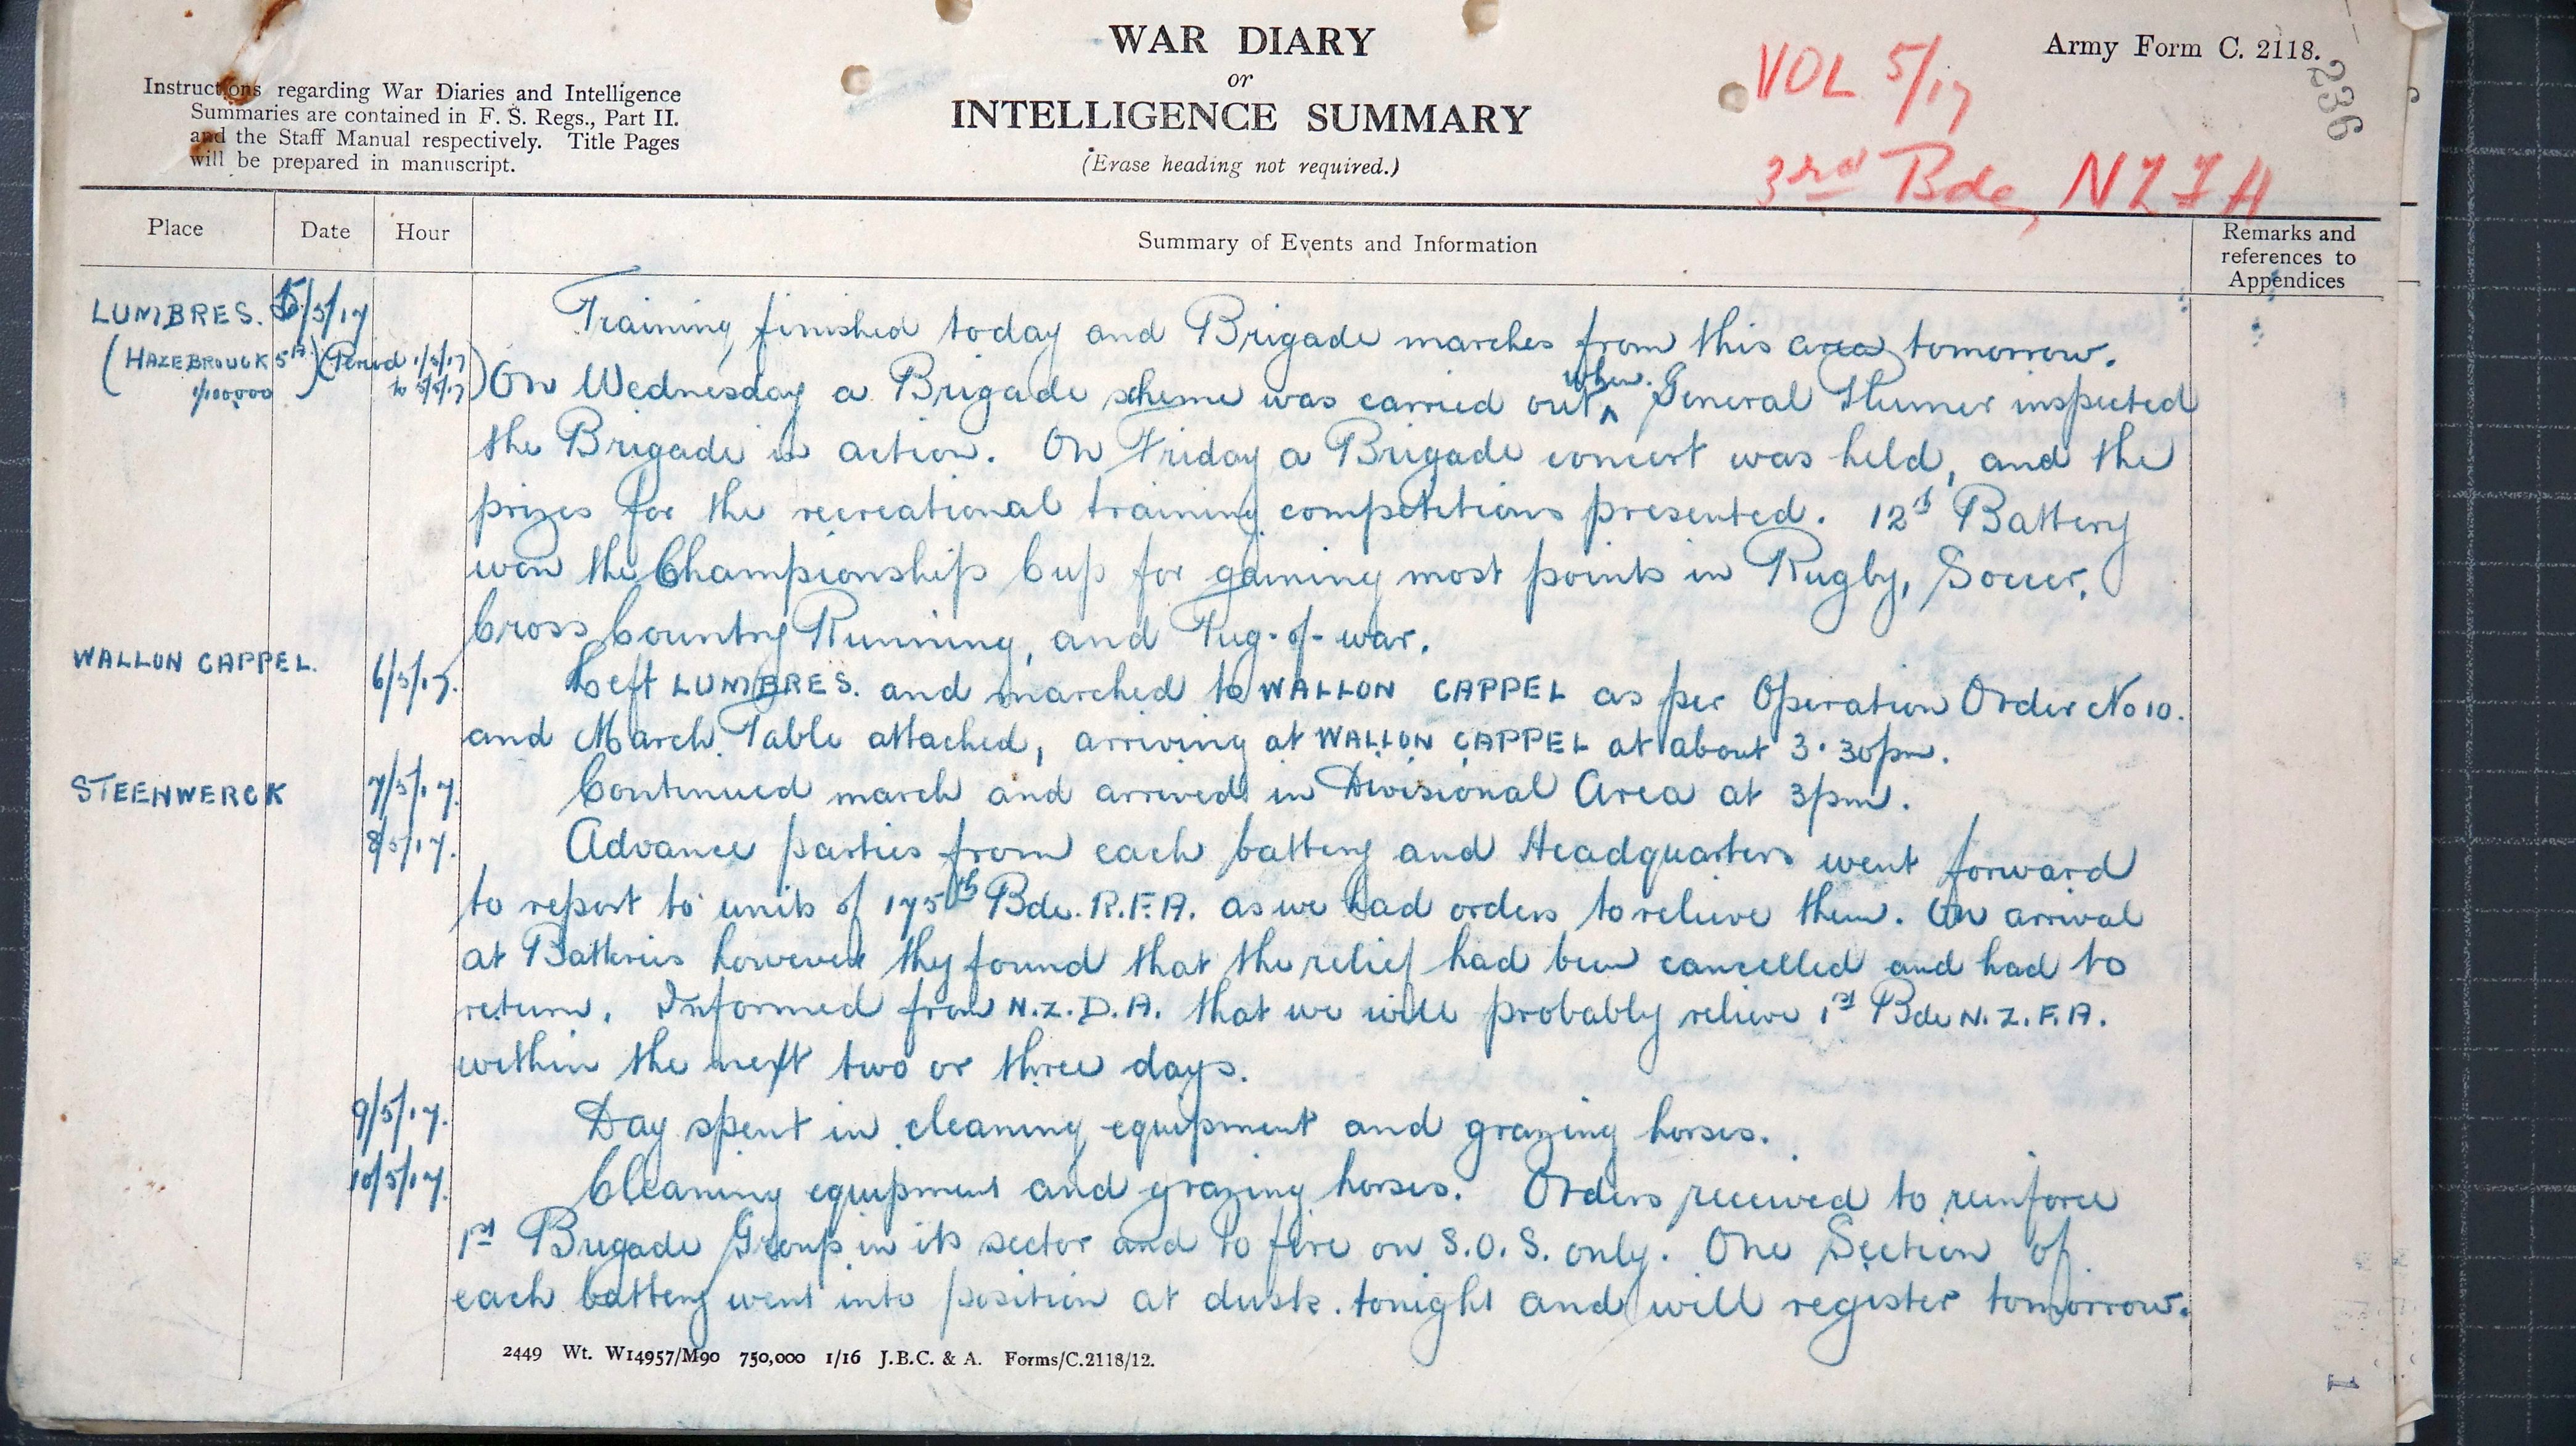 WAR DIARY
or
INTELLIGENCE SUMMARY
(Erase heading not required.)
Army Form C. 2118.
236
VOL 5/17
3rd Bde, NZFA
Instructions regarding War Diaries and Intelligence
Summaries are contained in F. S. Regs., Part II.
and the Staff Manual respectively. Title Pages
will be prepared in manuscript.
Place Date Hour Summary of Events and Information Remarks and references to Appendices
LUMBRES. 5/5/17 Training finished today and Brigade marches from this area tomorrow.
(HAZEBROUCK 5A. 1/100,000) (Period 1/5/17 to 5/5/17) On Wednesday a Brigade scheme was carried out when General Plumer inspected
the Brigade in action. On Friday a Brigade concert was held, and the
prizes for the recreational training competitions presented. 12th Battery
won the Championship Cup for gaining most points in Rugby, Soccer,
Cross Country Running, and Tug-of-war.
WALLON CAPPEL. 6/5/17. Left LUMBRES. and marched to WALLON CAPPEL as per Operation Order No 10.
and March Table attached, arriving at WALLON CAPPEL at about 3.30pm.
STEENWERCK 7/5/17. Continued march and arrived in Divisional Area at 3pm.
8/5/17. Advance parties from each battery and Headquarters went forward
to report to units of 175th Bde. R.F.A. as we had orders to relieve them. On arrival
at Batteries however they found that the relief had been cancelled and had to
return. Informed from N.Z.D.A. that we will probably relieve 1st Bde N.Z.F.A.
within the next two or three days.
9/5/17. Day spent in cleaning equipment and grazing horses.
10/5/17. Cleaning equipment and grazing horses. Orders received to reinforce
1st Brigade Group in its sector and to fire on S.O.S. only. One Section of
each battery went into position at dusk tonight and will register tomorrow.
2449 Wt. W14957/M90 750,000 1/16 J.B.C. & A. Forms/C.2118/12.
1